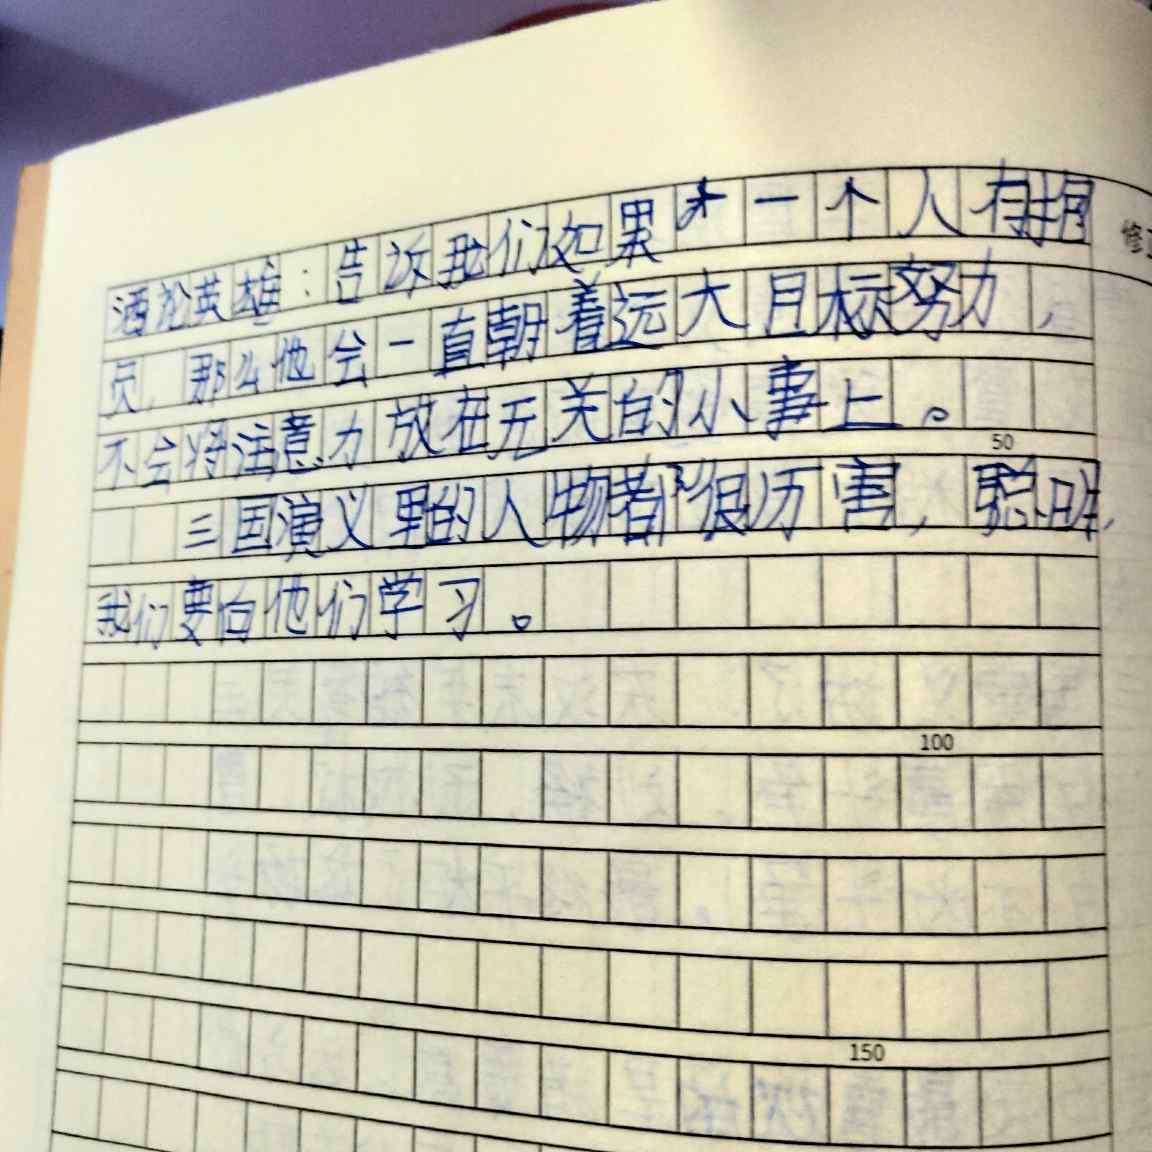 酒论英雄：告诉我们如果一个人有抱
负，那么他会一直朝着远大目标努力，
不会将注意力放在无关的小事上。
三国演义里的人物都很历害，聪明，
我们要向他们学习。
50
100
150